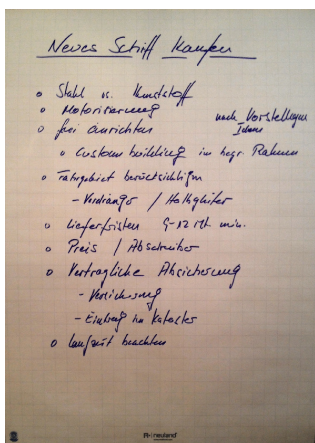 Neues Schiff kaufen
o Stahl vs. Kunststoff
o Motorisierung
o frei einrichten nach Vorstellungen
o Custom building im begr. Rahmen
o Fahrgebiet berücksichtigen
- Verdränger / Halbgleiter
o Lieferfristen 9-12 Mt min.
o Preis /
o Vertragliche Absicherung
- Versicherung
- Eintrag im Kataster
o beachten
neuland